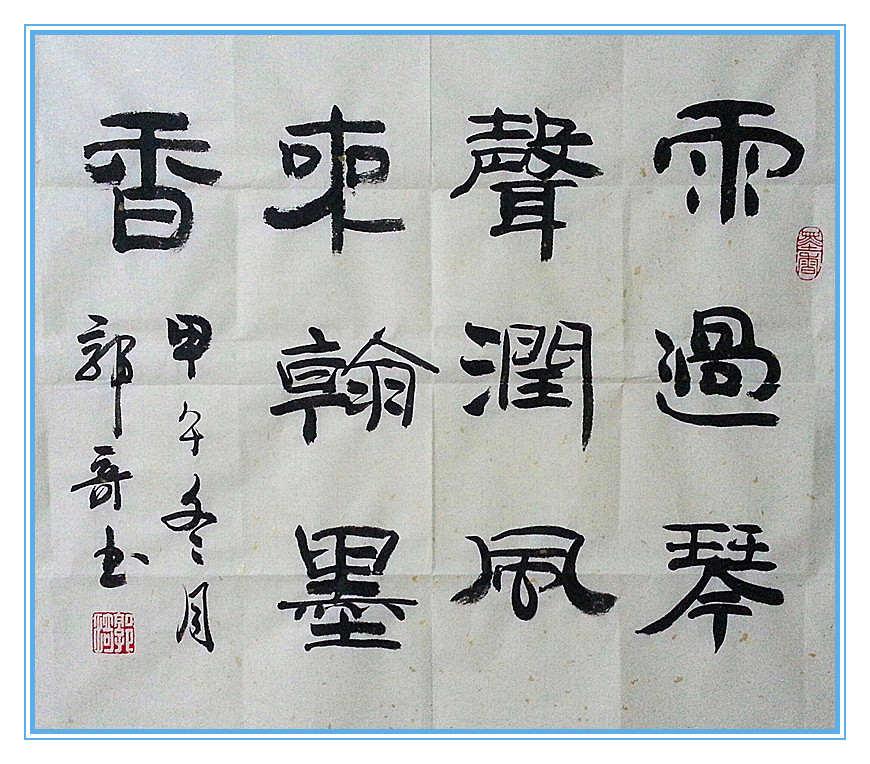 雨過琴
聲潤風
來翰墨
香
甲午冬月
郭 书